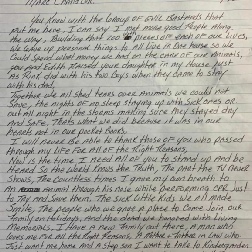 You know with the Group of
put me here, I can say I met some Good People along
the way. Building that 100
We gave up personal things to all live in the home so we
Could spend what money we had on the care of our animals
you and Edith raised your daughter in my house just
as Rick did with his two boys when they came to stay
with his dad.
Together we all shed tears over Animals we could not
Save, the nights of no sleep staying up with sick ones or
out all night in the storms making sure they stayed dry
and safe. That's what we did because it was in our
hearts not in our pocket Books.
I will never be able to thank those of you who passed
through my life for all of the Right Reasons.
Now is the time I need all of you to stand up and be
Heard so the world knows the Truth. The past the TV never
Shows. The countless times I gave my own breath to
an animal through his nose while performing CPR just
to try and Save them. The sick little kids we all made
Smile, The people who we gave a place to come Join our
Family on Holidays and the dead we honored with living
Memorials. I have a new family out there, a man who
loves me for all the Right Reasons,
Just want me home and a step son I want to take to Kindergarten